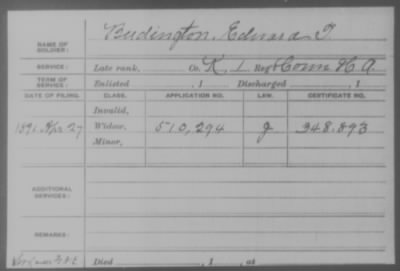 NAME OF SOLDIER: Budington, Edward T.
SERVICE: Late rank, Co. K, 1 Reg't Conn H. A.
TERM OF SERVICE: Enlisted , 1 Discharged , 1
DATE OF FILING. CLASS. APPLICATION NO. LAW. CERTIFICATE NO.
Invalid,
1891 Apr 27 Widow, 510,294 g 348.893
Minor,
ADDITIONAL SERVICES:
REMARKS:
Died , 1 , at